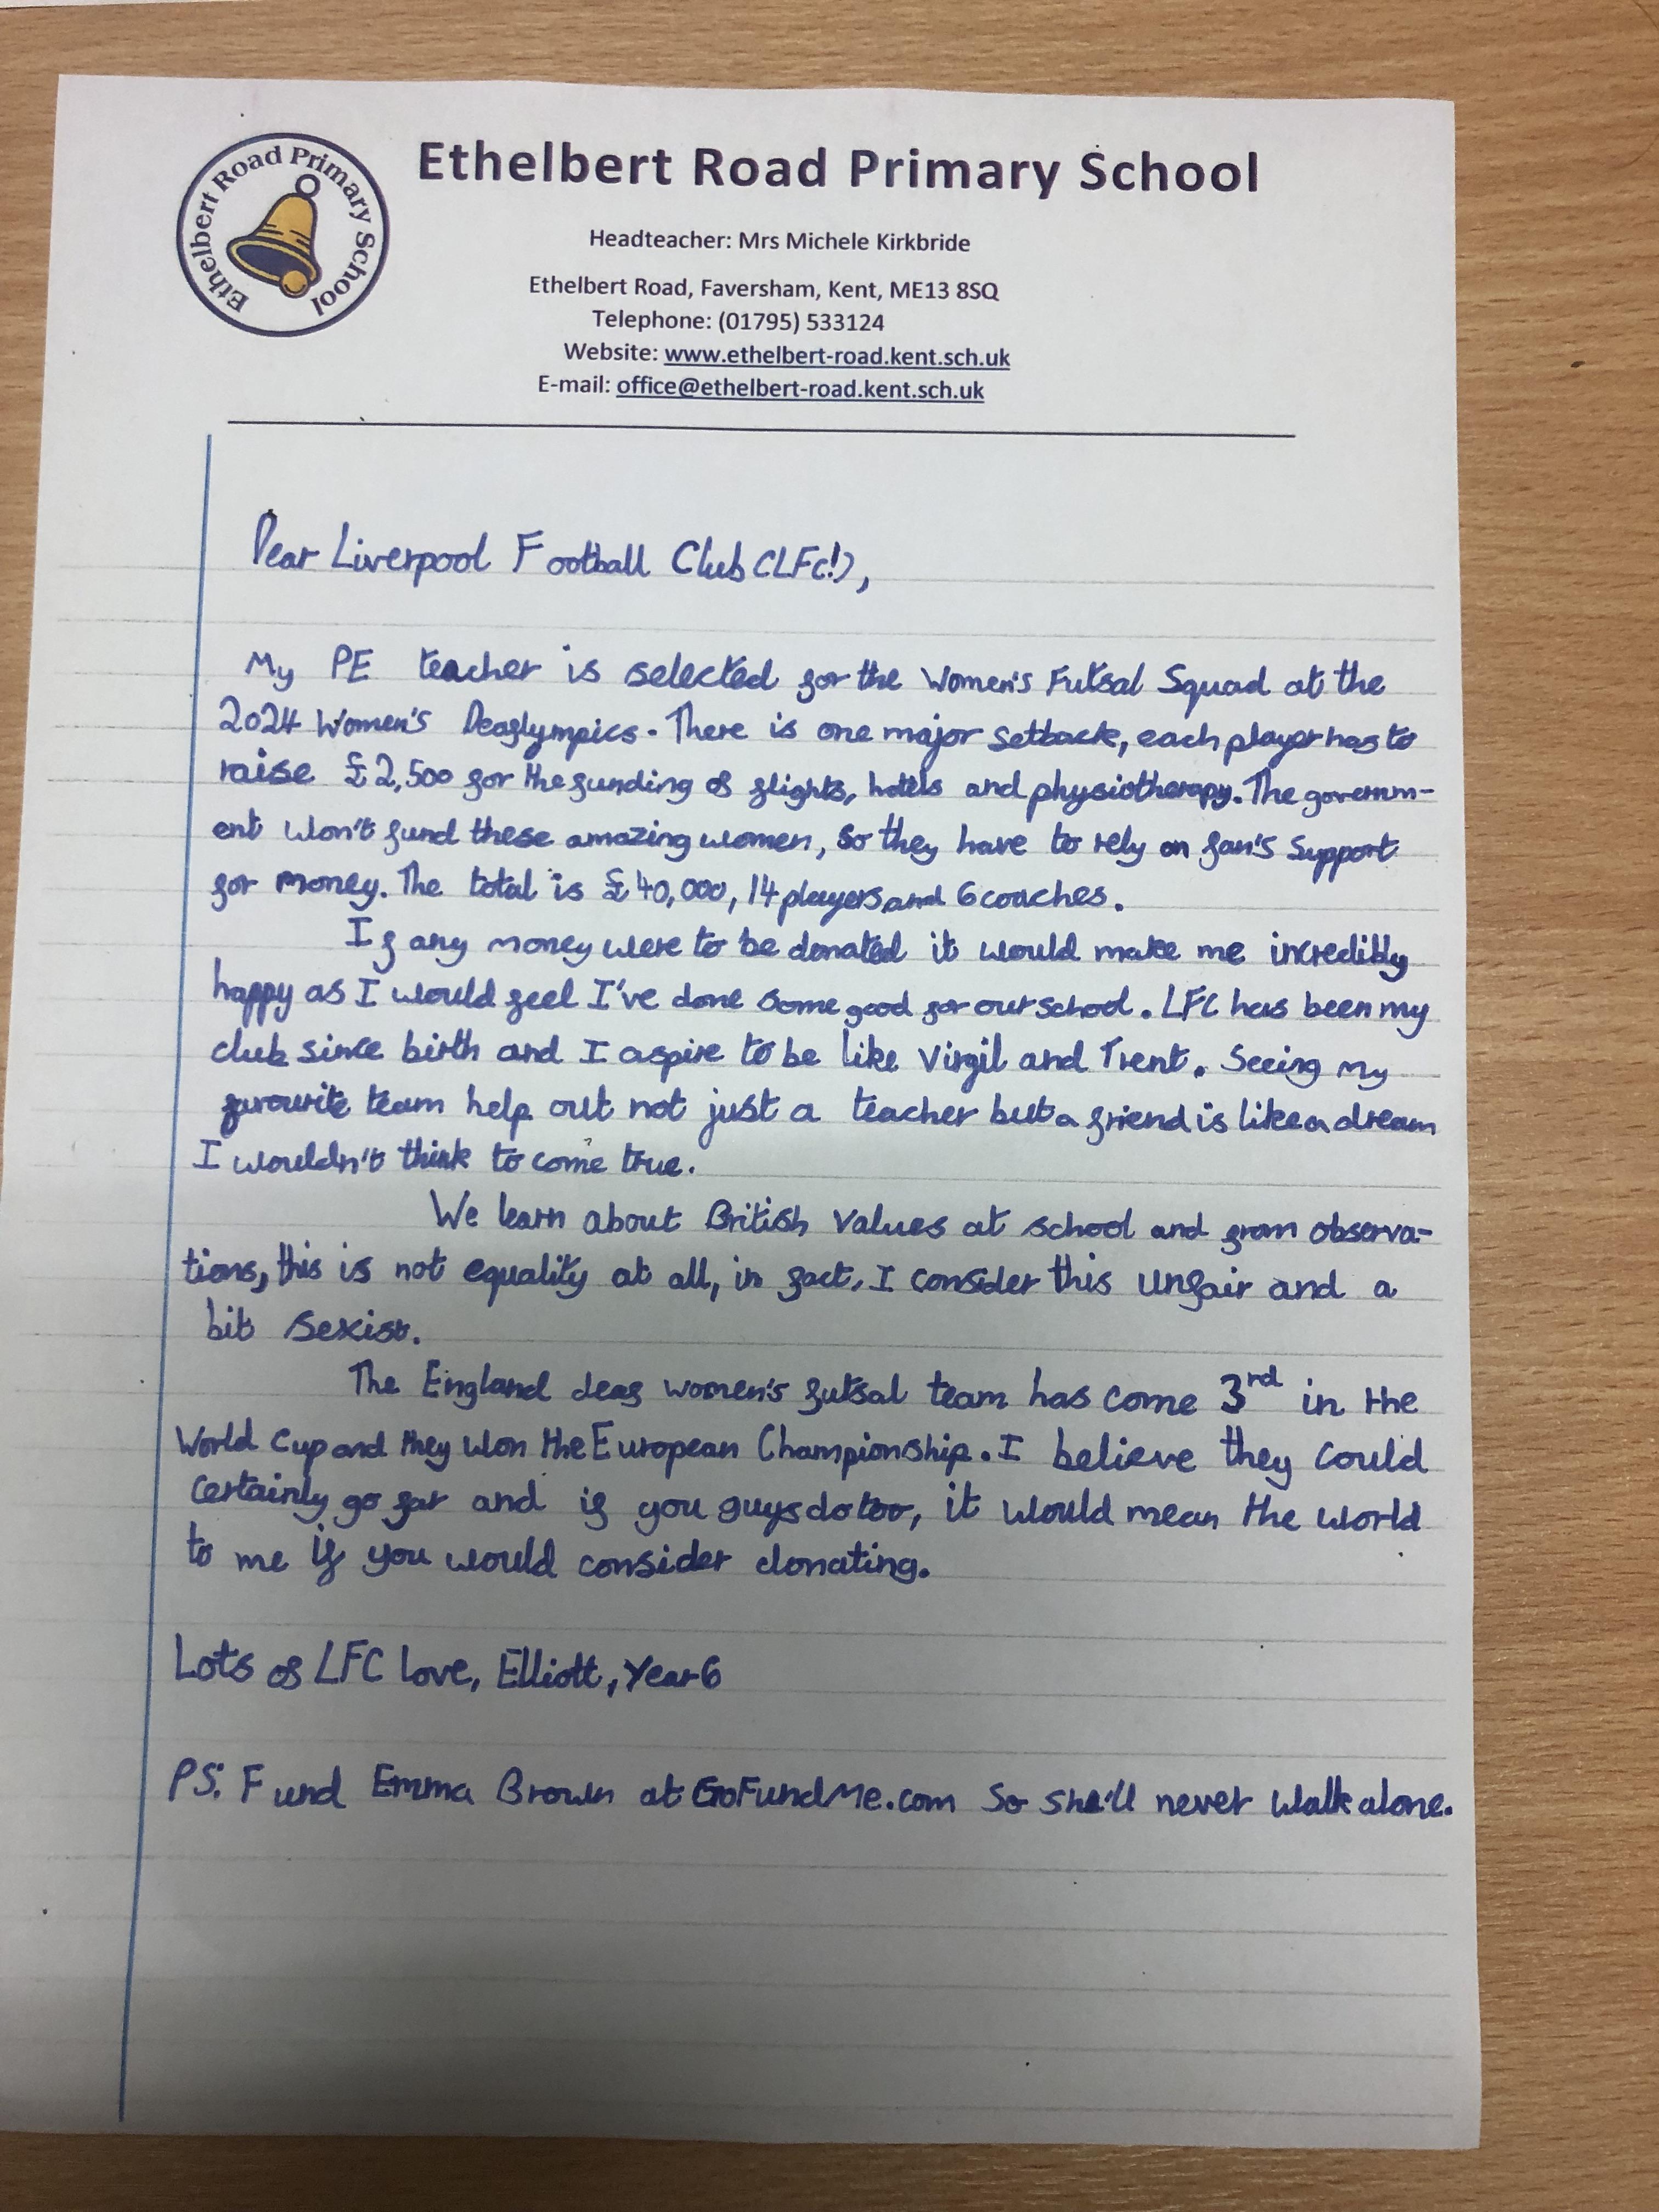 Ethelbert Road Primary School
Ethelbert Road Primary School
Headteacher: Mrs Michele Kirkbride
Ethelbert Road, Faversham, Kent, ME13 8SQ
Telephone: (01795) 533124
Website: www.ethelbert-road.kent.sch.uk
E-mail: office@ethelbert-road.kent.sch.uk
Dear Liverpool Football Club (LFC!),
My PE teacher is selected for the Women's Futsal Squad at the
2024 Women's Deaflympics. There is one major setback, each player has to
raise £2,500 for the funding of flights, hotels and physiotherapy. The governm-
ent won't fund these amazing women, so they have to rely on fan's support
for money. The total is £40,000, 14 players and 6 coaches.
If any money were to be donated it would make me incredibly
happy as I would feel I've done some good for our school. LFC has been my
club since birth and I aspire to be like Virgil and Trent. Seeing my
favourite team help out not just a teacher but a friend is like a dream
I wouldn't think to come true.
We learn about British Values at school and from observa-
tions, this is not equality at all, in fact, I consider this unfair and a
bit sexist.
The England deaf women's futsal team has come 3rd in the
World Cup and they won the European Championship. I believe they could
certainly go far and if you guys do too, it would mean the world
to me if you would consider donating.
Lots of LFC love, Elliott, Year 6
PS: Fund Emma Brown at GoFundMe.com So she'll never walk alone.